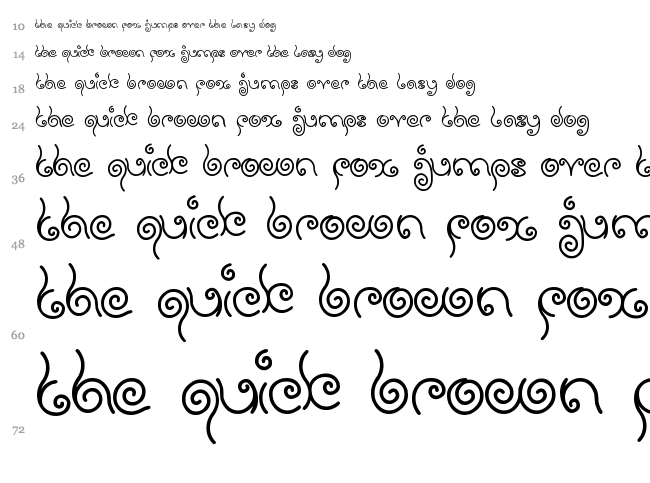 10 the quick brown fox jumps over the lazy dog
14 the quick brown fox jumps over the lazy dog
18 the quick brown fox jumps over the lazy dog
24 the quick brown fox jumps over the lazy dog
36 the quick brown fox jumps over t
48 the quick brown fox jum
60 the quick brown fox
72 the quick brown f